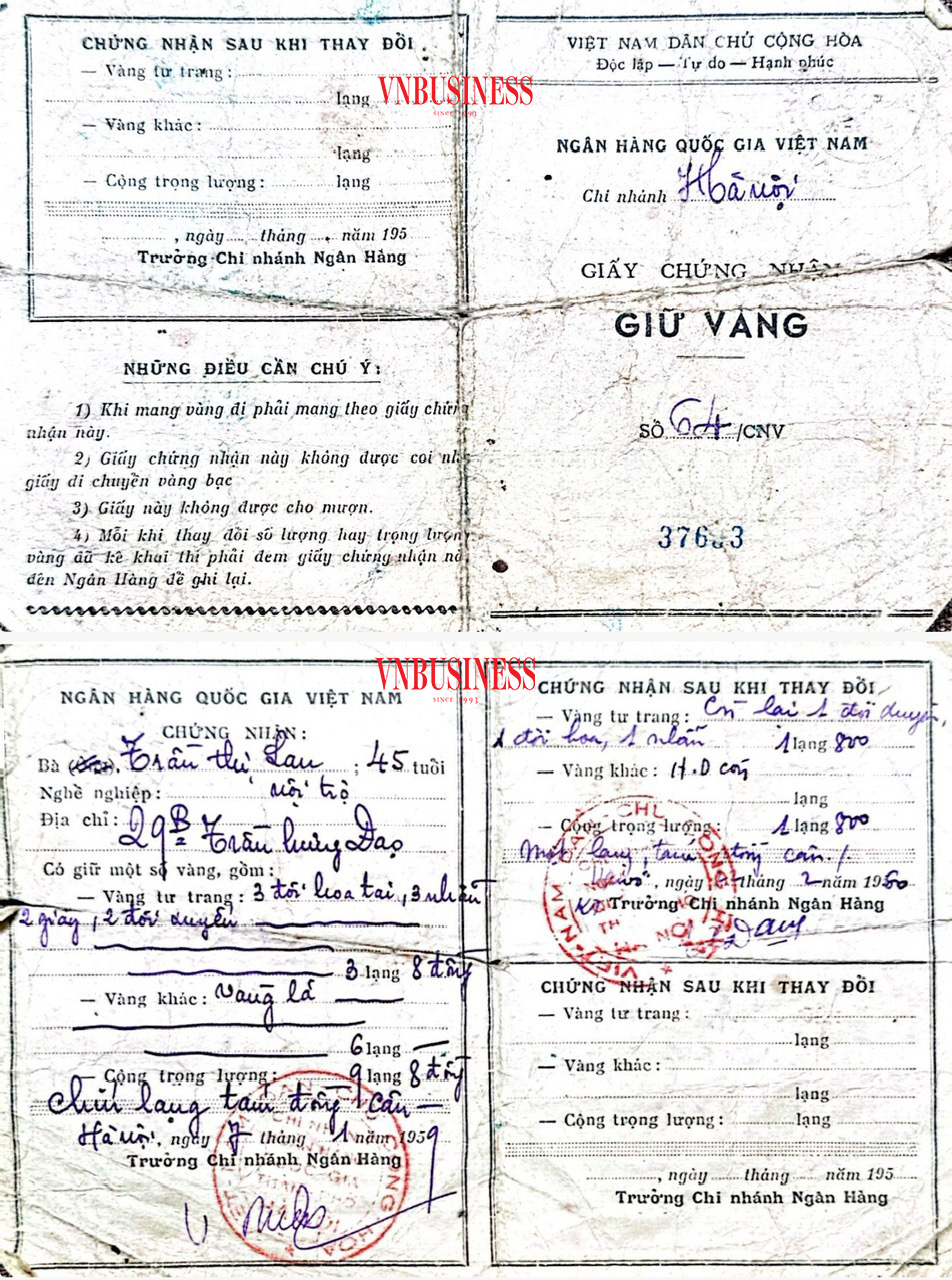 CHỨNG NHẬN SAU KHI THAY ĐỔI
— Vàng tư trang :
lạng
— Vàng khác :
lạng
— Cộng trọng lượng : lạng
, ngày tháng năm 195
Trưởng Chi nhánh Ngân Hàng
NHỮNG ĐIỀU CẦN CHÚ Ý :
1) Khi mang vàng đi phải mang theo giấy chứng
nhận này.
2) Giấy chứng nhận này không được coi như
giấy di chuyển vàng bạc
3) Giấy này không được cho mượn.
4) Mỗi khi thay đổi số lượng hay trọng lượng
vàng đã kê khai thì phải đem giấy chứng nhận
đến Ngân Hàng để ghi lại.
VNBUSINESS
SINCE 1993
VIỆT NAM DÂN CHỦ CỘNG HÒA
Độc lập — Tự do — Hạnh phúc
NGÂN HÀNG QUỐC GIA VIỆT NAM
Chi nhánh Hà nội
GIẤY CHỨNG NHẬN
GIỮ VÀNG
SỐ 64 /CNV
VNBUSINESS
SINCE 1993
NGÂN HÀNG QUỐC GIA VIỆT NAM
CHỨNG NHẬN :
Bà Trần thị Lan ; 45 tuổi
Nghề nghiệp : nội trợ
Địa chỉ : 29B Trần hưng Đạo
Có giữ một số vàng, gồm :
— Vàng tư trang : 3 đôi hoa tai, 3 nhẫn
2 giây, 2 đôi xuyến
3 lạng 8 đồng
— Vàng khác : vàng lá
6 lạng
— Cộng trọng lượng : 9 lạng 8 đồng
Chín lạng tám đồng cân —
Hà nội, ngày 7 tháng 1 năm 1959
Trưởng Chi nhánh Ngân Hàng
CHỨNG NHẬN SAU KHI THAY ĐỔI
— Vàng tư trang : Còn lại 1 đôi xuyến,
1 đôi hoa, 1 nhẫn 1 lạng 800
— Vàng khác :
lạng
— Cộng trọng lượng : 1 lạng 800
Một lạng, tám đồng cân /
, ngày tháng 2 năm 1960
Trưởng Chi nhánh Ngân Hàng
CHỨNG NHẬN SAU KHI THAY ĐỔI
— Vàng tư trang :
lạng
— Vàng khác :
lạng
— Cộng trọng lượng : lạng
, ngày tháng năm 195
Trưởng Chi nhánh Ngân Hàng